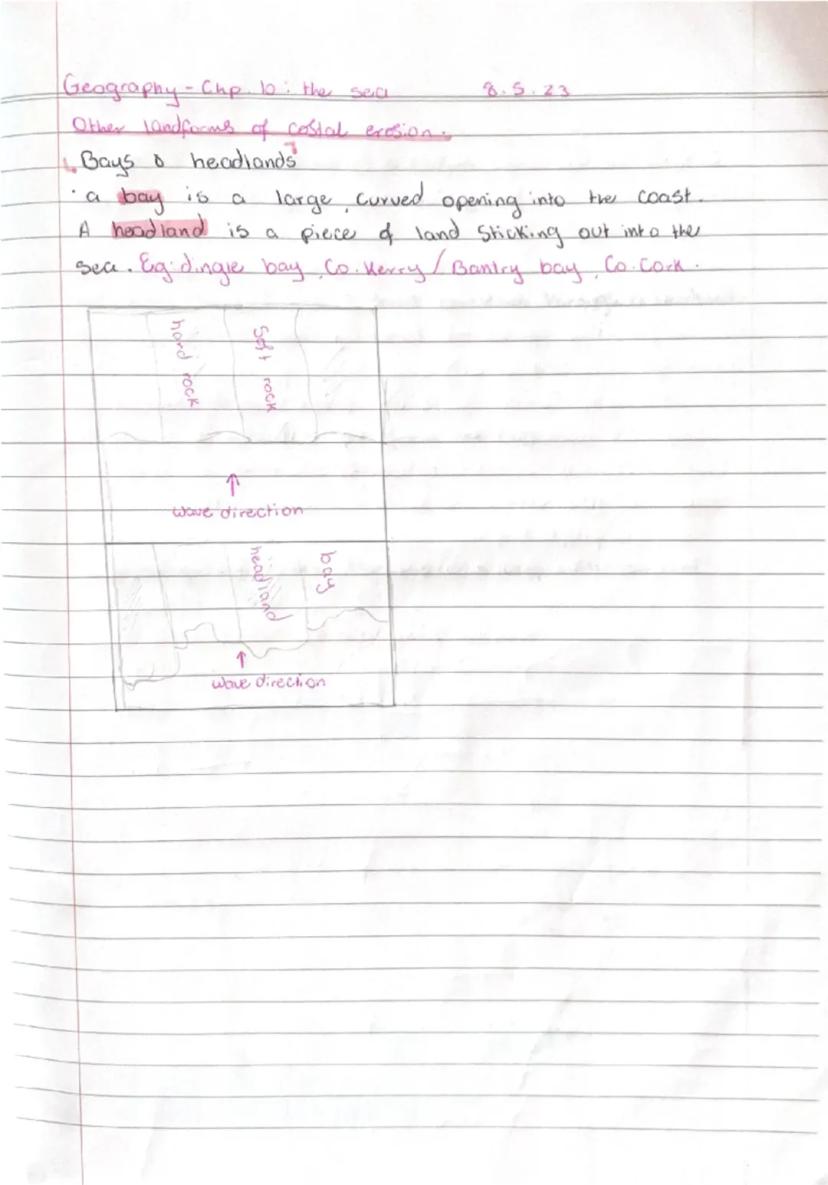 Geography - Chp. 10: the sea 8.5.23
Other landforms of costal erosion.
Bays & headlands
· a bay is a large, curved opening into the coast.
A headland is a piece of land sticking out into the
sea. Eg: dingle bay, Co. Kerry / Bantry bay, Co. Cork.
hard rock
Soft rock
↑
wave direction
headland
bay
↑
wave direction